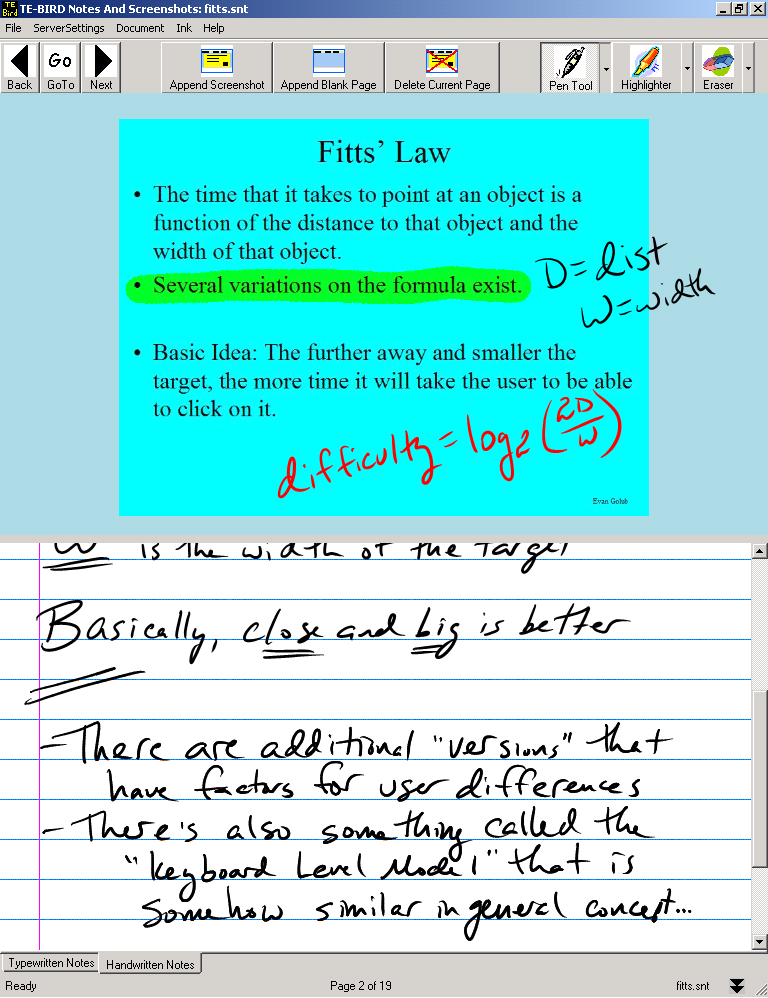 TE-BIRD Notes And Screenshots: fitts.snt
File ServerSettings Document Ink Help
Go
Back GoTo Next Append Screenshot Append Blank Page Delete Current Page Pen Tool Highlighter Eraser
Fitts' Law
• The time that it takes to point at an object is a
function of the distance to that object and the
width of that object.
• Several variations on the formula exist.
D=dist
W=width
• Basic Idea: The further away and smaller the
target, the more time it will take the user to be able
to click on it.
difficulty = log2 (2D/W)
Evan Golub
W is the width of the target
Basically, close and big is better
- There are additional "versions" that
have factors for user differences
- There's also something called the
"Keyboard Level Model" that is
somehow similar in general concept...
Typewritten Notes Handwritten Notes
Ready Page 2 of 19 fitts.snt